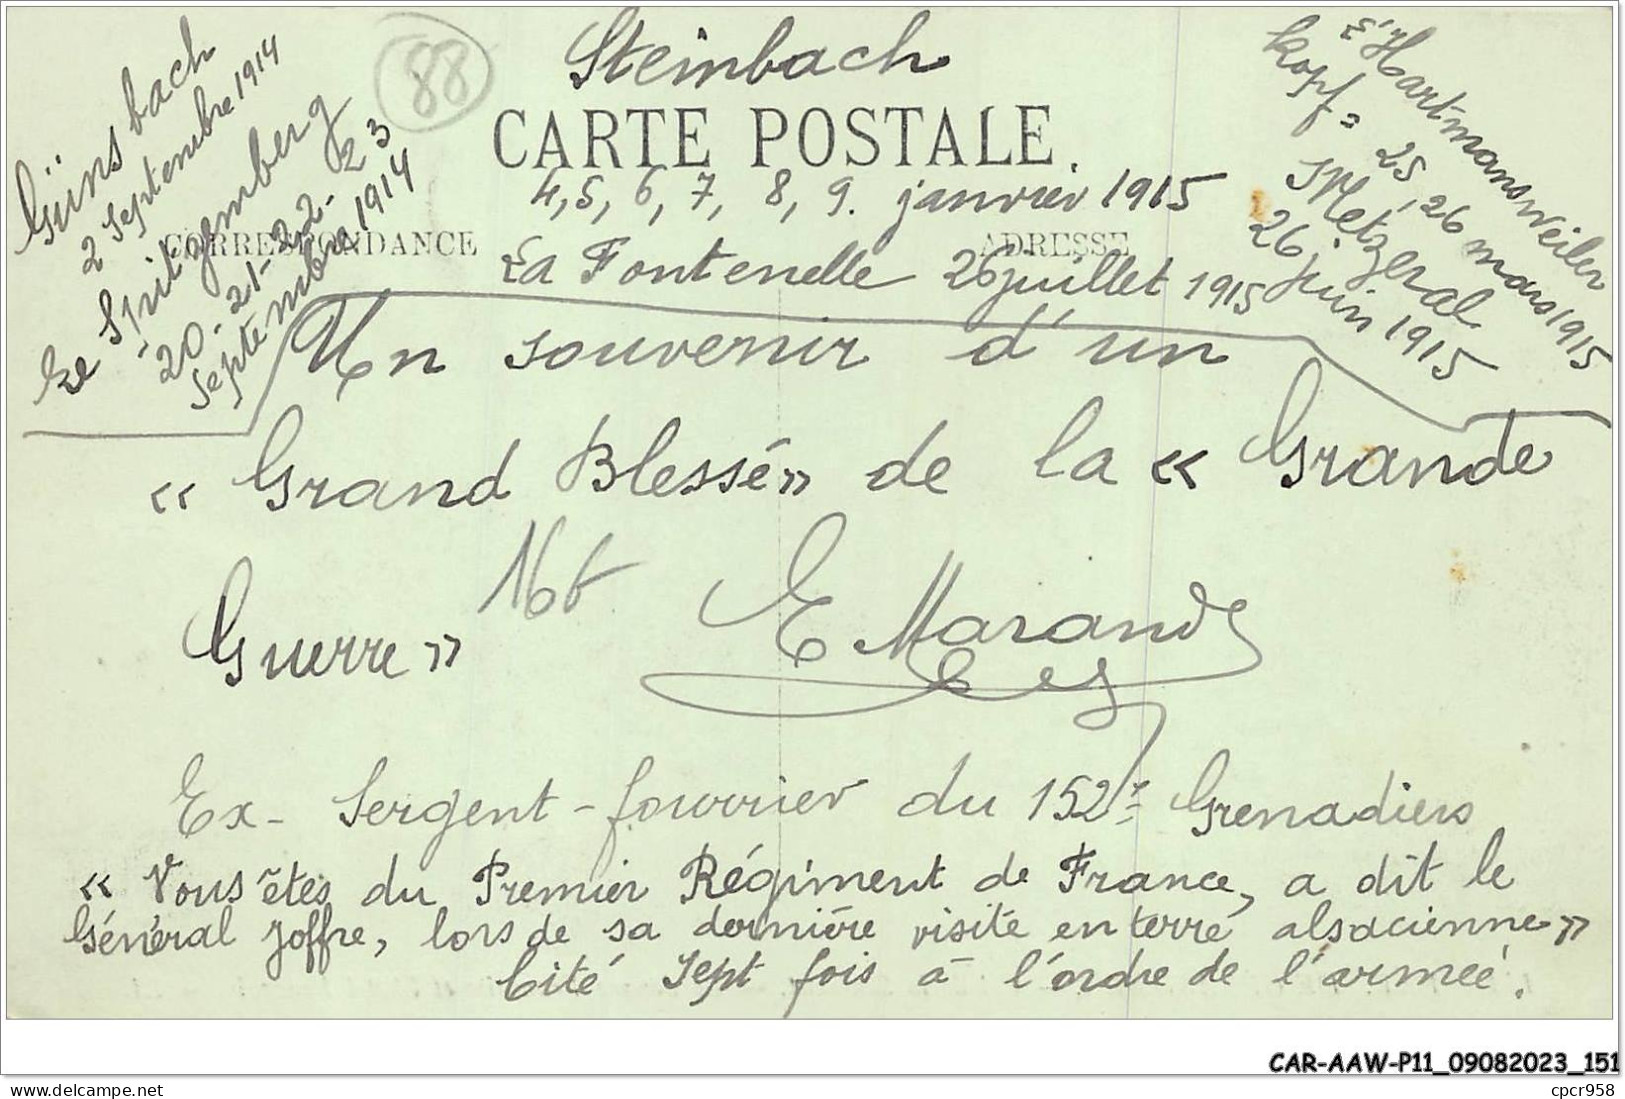 Günsbach
2 Septembre 1914
Le Spitzemberg
20-21-22-23
Septembre 1914
88
Steinbach
CARTE POSTALE.
4, 5, 6, 7, 8, 9. janvier 1915
CORRESPONDANCE
ADRESSE
La Fontenelle 26 juillet 1915
L'Hartmansweiler
Kopf = 25, 26 mars 1915
Metzeral
26 juin 1915
Un souvenir d'un
« Grand Blessé » de la « Grande
Guerre »
E Marand
Ex-Sergent-fourrier du 152e Grenadiers
« Vous êtes du Premier Régiment de France, a dit le
Général Joffre, lors de sa dernière visite en terre alsacienne »
Cité Sept fois à l'ordre de l'armée.
CAR-AAW-P11_09082023_151
delcampe.net
cpcr958